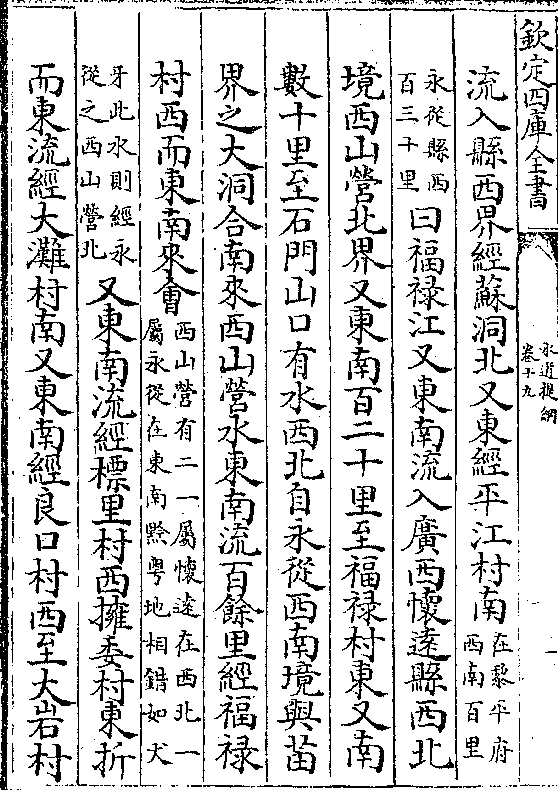 欽定四庫全書
水道提綱
卷十九
流入縣西界經蘇洞北又東經平江村南在黎平府西南百里
永從縣西百三十里曰福禄江又東南流入廣西懷逺縣西北
境西山營北界又東南百二十里至福禄村東又南
數十里至石門山口有水西北自永從西南境與苗
界之大洞合南來西山營水東南流百餘里經福禄
村西而東南來會西山營有二一屬懷逺在西北一屬永從在東南黔粤地相錯如犬
牙此水則經永從之西山營北又東南流經標里村西擁委村東折
而東流經大灘村南又東南經良口村西至大岩村